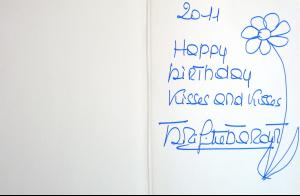 2011
Happy
birthday
kisses and kisses